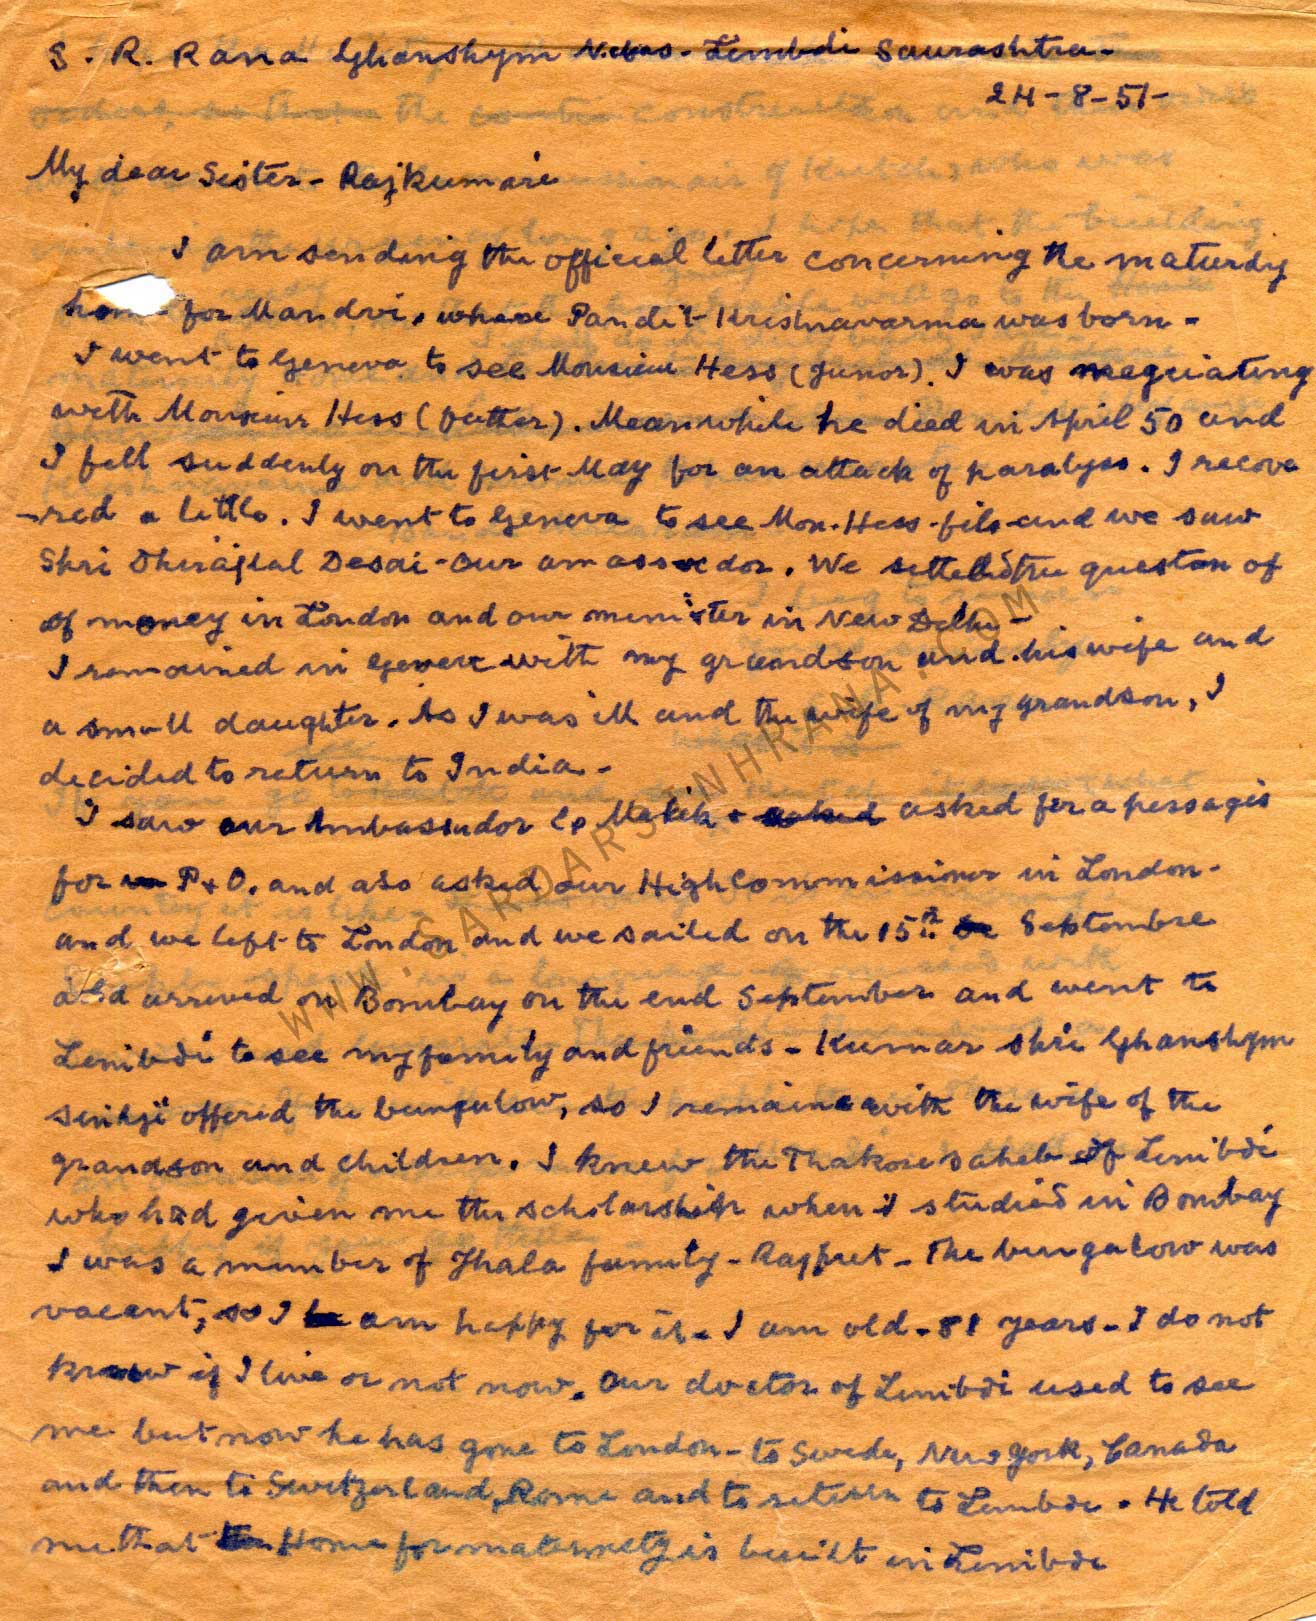 S. R. Rana Ghanshym Nivas - Limbdi Saurashtra -
24-8-51-
My dear Sister - Rajkumari
I am sending the official letter concerning the maturdy
home for Mandvi, where Pandit Krishnavarma was born -
I went to Geneva to see Monsieur Hess (Junor). I was negciating
with Monsieur Hess (father). Meanwhile he died in April 50 and
I fell suddenly on the first May for an attack of paralyss. I recove
-red a little. I went to Geneva to see Mon. Hess - fils - and we saw
Shri Dhirajlal Desai - Our amassedor. We setteled the queston of
of money in London and our minister in New Delhi -
I remained in with my grandson and his wife and
a small daughter. As I was ill and the wife of my grandson, I
decided to return to India -
I saw our Ambassador Malik + asked asked for a passages
for P+O. and also asked our High Commissioner in London -
and we left to London and we sailed on the 15th Septembre
and arrived on Bombay on the end September and went to
Limbdi to see my family and friends - Kumar shri Ghanshym
sinhji offered the bungulow, so I remaine with the wife of the
grandson and children. I knew the Thakore saheb of Limbdi
who had given me the scholarship when I studied in Bombay
I was a member of Jhala family - Rajput - The bungalow was
vacent, so I am happy for it - I am old - 81 years - I do not
know if I live or not now. Our doctor of Limbdi used to see
me but now he has gone to London - to Swede, New York, Canada
and then to Switzerland, Rome and to return to Limbdi. He told
me that Home for maternety is built in Limbdi
WWW.SARDARSINHRANA.COM